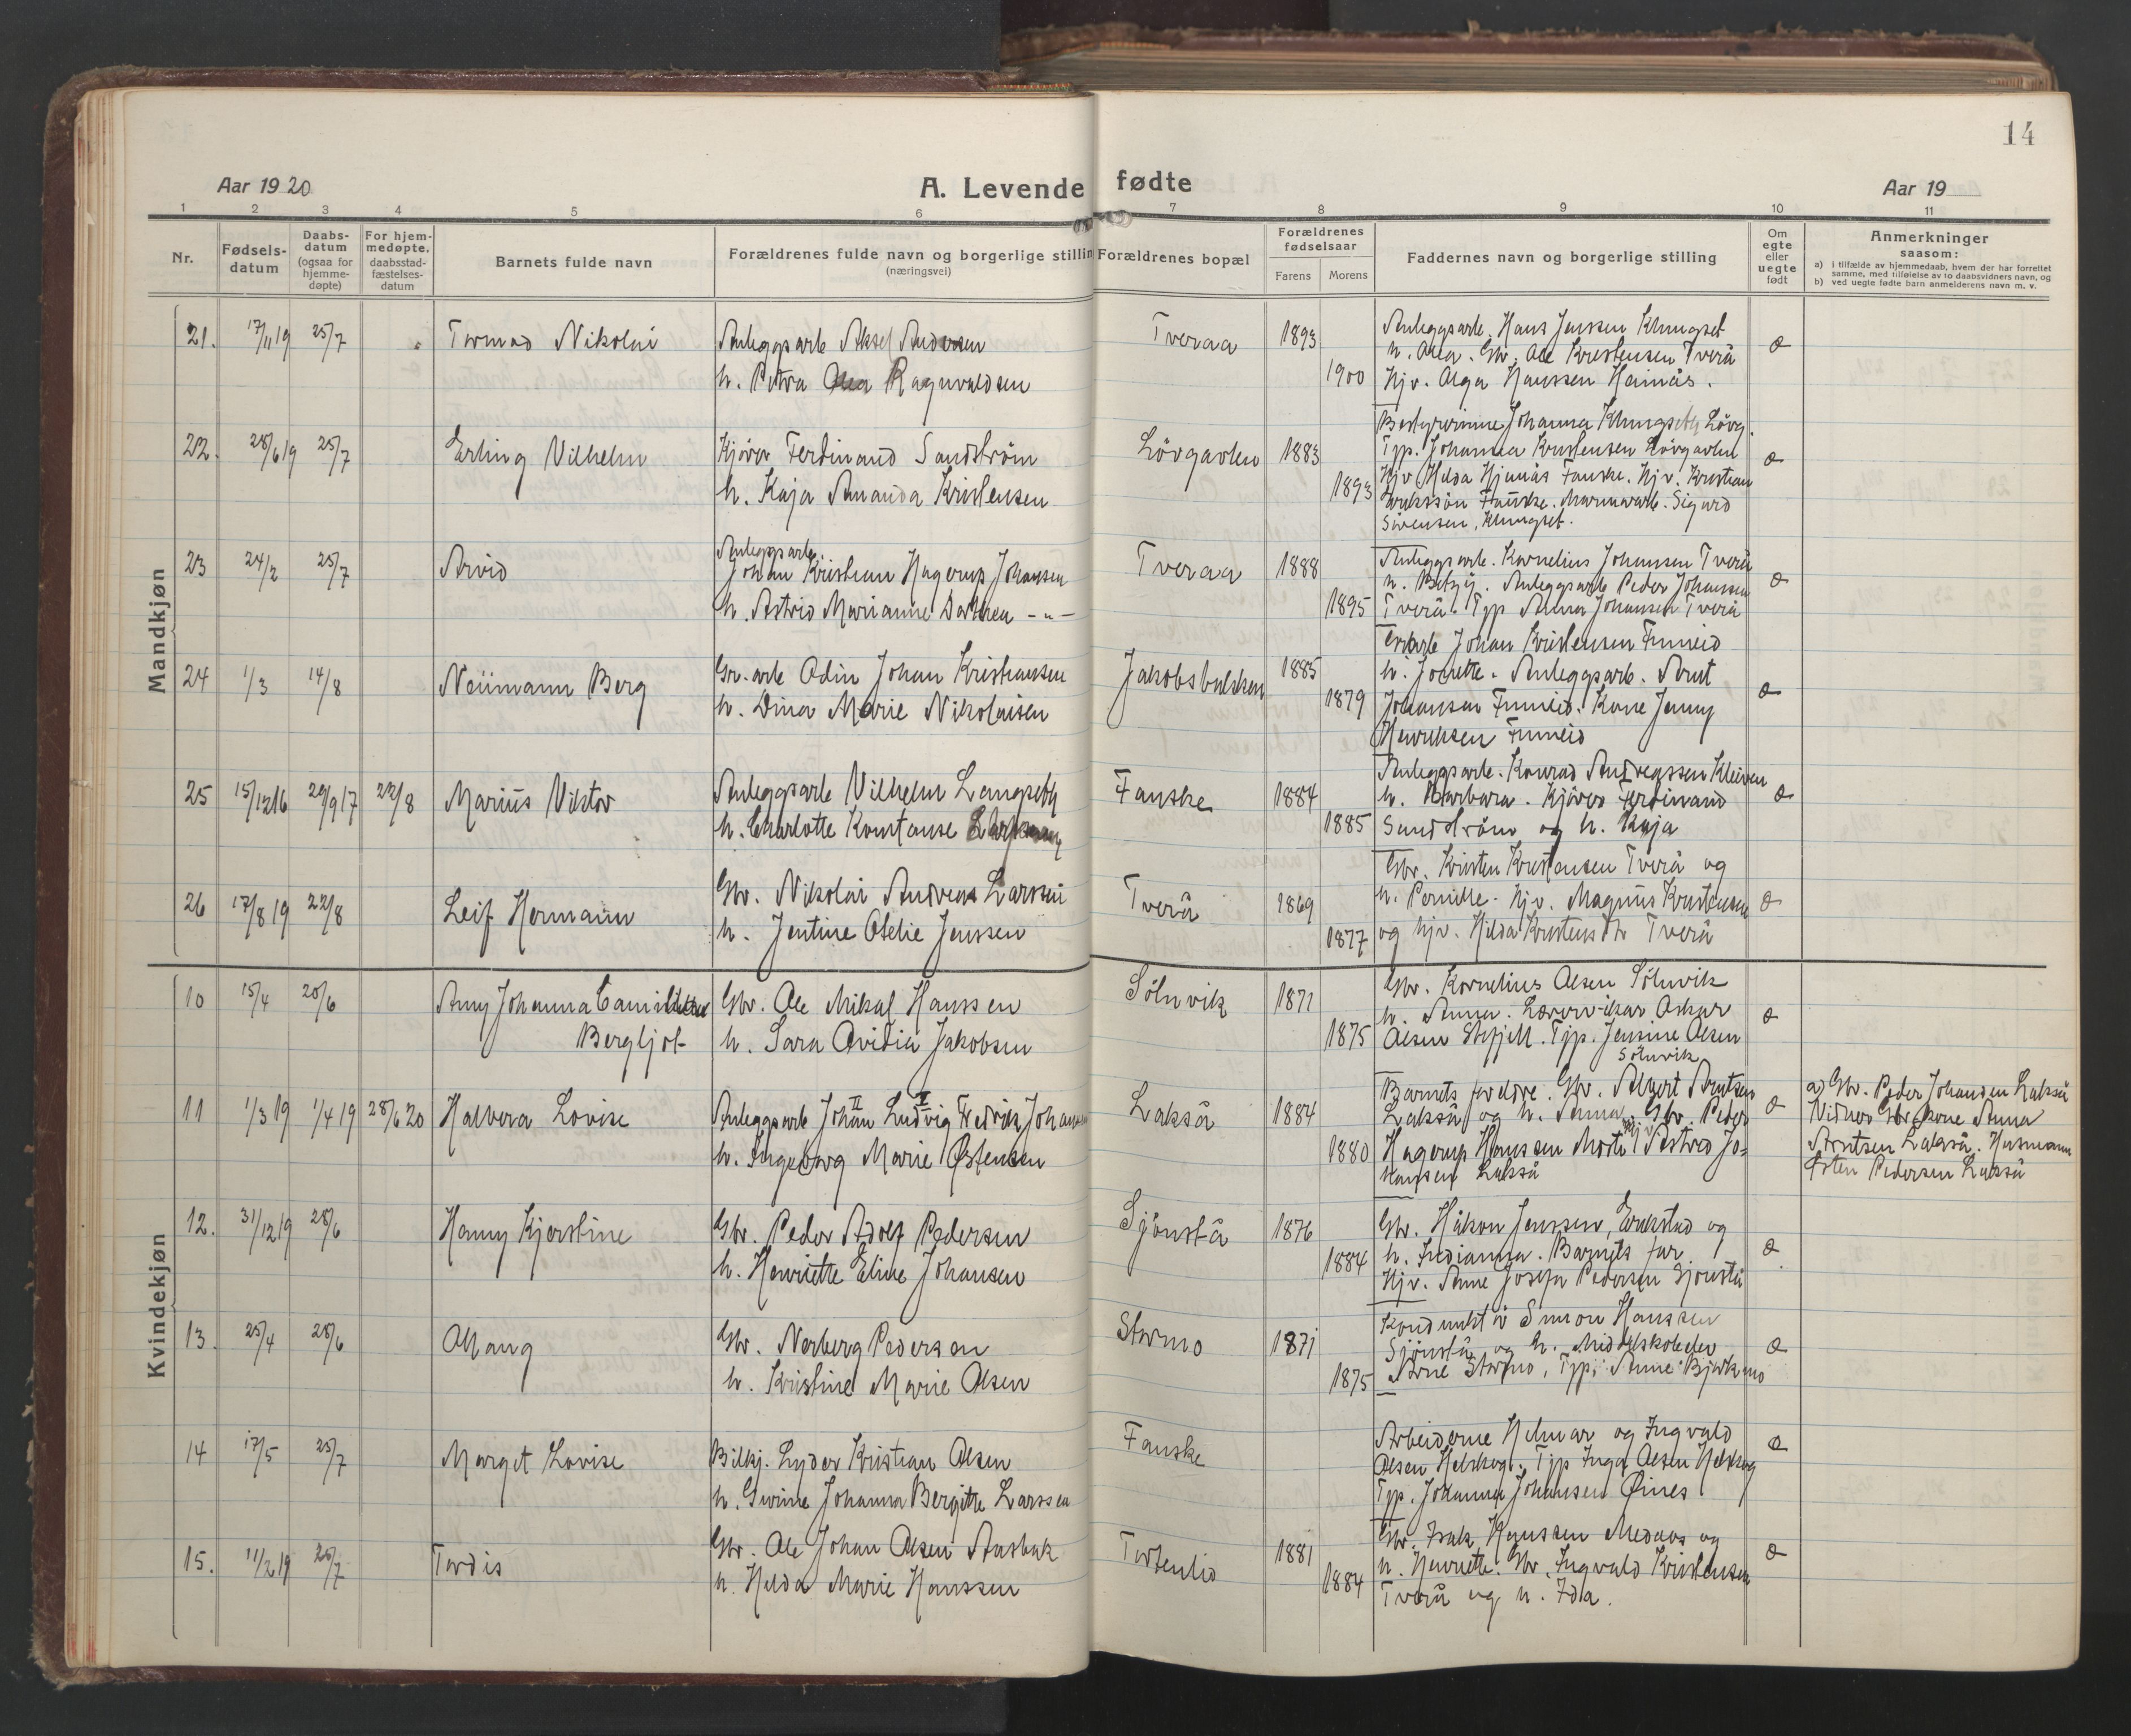 14
Aar 1920
A. Levende fødte
Aar 19
1 2 3 4 5 6 7 8 9 10 11
Nr.
Fødsels-
datum
Daabs-
datum
(ogsaa for
hjemme-
døpte)
For hjem-
medøpte,
daabsstad-
fæstelses-
datum
Barnets fulde navn
Forældrenes fulde navn og borgerlige stilling
(næringsvei)
Forældrenes bopæl
Forældrenes
fødselsaar
Farens Morens
Faddernes navn og borgerlige stilling
Om
egte
eller
uegte
født
Anmerkninger
saasom:
a) i tilfælde av hjemmedaab, hvem der har forrettet
samme, med tilføielse av to daabsvidners navn, og
b) ved uegte fødte barn anmelderens navn m. v.
Mandkjøn
21. 17/11 19 25/7 Tormod Nikolai
Anleggsarb Aksel Andersen
h. Petra Olea Ragnvaldsen
Tveraa 1893
1900
Anleggsarb. Hans Jenssen Klungset
h. Olea. Gbr. Ole Kristensen Tverå
Hjv. Olga Hanssen Heinås.
æ
22. 28/6 19 25/7 Erling Vilhelm
Kjører Ferdinand Sandström
h. Kaja Amanda Kristensen
Lövgavlen 1883
1893
Bestyrerinne Johanna Klungseth Lövg.
Typ. Johanna Kristensen Lövgavlen
Hjv Hilda Hjemås Fauske. Hjv. Kristian
Erikssön Fauske. Marmorarb. Sigurd
Sörensen, Klungset.
æ
23 24/2 25/7 Arvid
Anleggsarb.
Johan Kristian Hagerup Johansen
h. Astrid Marianne Dorthea -"-
Tveraa 1888
1895
Anleggsarb. Kornelius Johansen Tverå
h. Betzy. Anleggsarb Peder Johansen
Tverå. Typ Anna Johansen Tverå
æ
24 1/3 14/8 Neumann Berg
Gr. arb Odin Johan Kristiansen
h. Dina Marie Nikolaisen
Jakobsbakken 1885
1879
Johan Kristensen Funneid
h. Anleggsarb. Arnt
Johansen Funneid. Kone Jenny
Henriksen Funneid
æ
25 15/12 16 29/9 17 22/8 Marius Viktor
Anleggsarb Vilhelm Langseth
h. Charlotte Konstanse
Fauske 1884
1885
Anleggsarb. Konrad Andreassen Kleiven
h. Barbara. Kjører Ferdinand
Sandström og h. Kaja
æ
26 17/8 19 22/8 Leif Hermann
Gbr. Nikolai Andreas Larssen
h. Jentine Otelie Jenssen
Tverå 1869
1877
Gbr. Kristen Kristensen Tverå og
h. Pernille. Hjv. Magnus Kristensen
og hjv. Hilda Kristens Tverå
æ
Kvindekjøn
10 15/4 20/6 Anny Johanna
Bergljot
Gbr. Ole Mikal Hanssen
h. Sara Ovidia Jakobsen
Sölnvik 1871
1875
Gbr. Kornelius Olsen Sölnvik
h. Anna. Lærervikar Oskar
Olsen. Typ. Jensine Olsen
Sölnvik
æ
11 1/3 19 1/4 19 28/6 20 Halvera Lovise
Anleggsarb Johan Ludvig Fredrik Johansen
h. Ingeborg Marie Østensen
Lakså 1884
1880
Barnets foreldre. Gbr. Albert Arntsen
Lakså og h. Anna. Gbr. Peder
Hagerup Hanssen. Hjv Astrid Jo=
hansen Lakså
æ
a) Gbr. Peder Johansen Lakså
Vidner Gbr kone Anna
Arntsen Lakså. Husmann
Østen Pedersen Lakså
12. 31/12 19 28/6 Hanny Kjerstine
Gbr. Peder Adolf Pedersen
h. Henriette Eline Johansen
Sjönstå 1876
1884
Gbr. Håkon Jenssen, Erikstad og
h. Indianna. Barnets far
Hjv. Anne Josefa Pedersen Sjönstå
æ
13. 25/4 28/6 Olfang
Gbr. Norberg Pedersen
h. Kristine Marie Olsen
Stormo 1871
1875
Konduktör Simon Hanssen
Sjönstå og h. Middelskoleelev
Arne Stormo, Typ. Anne Bjørkmo
æ
14 17/5 25/7 Marget Lovise
Bilkj. Lyder Kristian Olsen
h. Gurine Johanna Bergitte Larssen
Fauske
Arbeiderne Helmar og Ingvald
Olsen. Typ Inga Olsen
Typ. Johanna Johansen Øines
æ
15. 11/2 19 25/7 Tordis
Gbr. Ole Johan Olsen Ausbak
h. Hilda Marie Hanssen
Tortenlid 1881
1884
Gbr. Isak Hanssen Medaas og
h. Henriette. Gbr. Ingvald Kristensen
Tverå og h. Ida.
æ